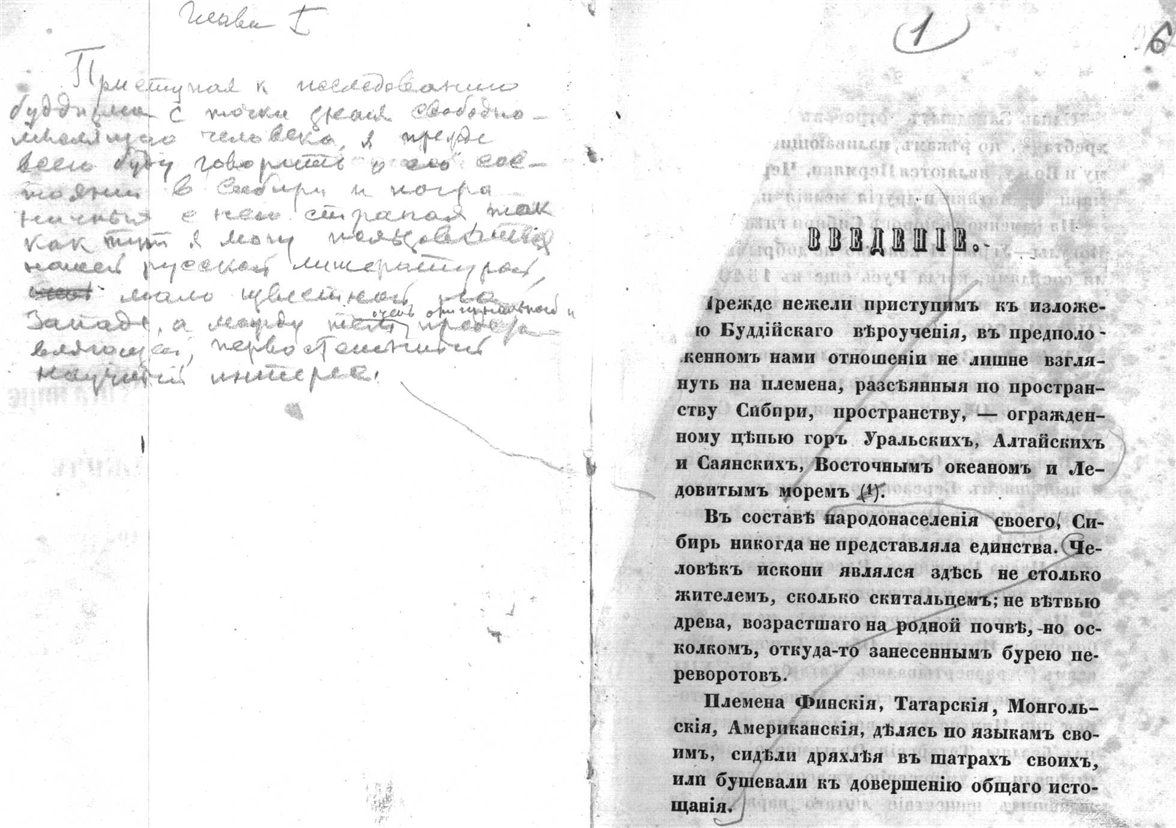 Глава I
Приступая к исследованию
буддизма с точки зрения свободно-
мыслящего человека, я прежде
всего буду говорить о его сос-
тоянии в Сибири и погра-
ничных с нею странах так
как тут я могу пользоваться
нашей русской литературой,
мало известной на
Западе, а между тем представ-
очень оригинальной и
вляющей, первостепенный
научный интерес.
1
6
ВВЕДЕНІЕ.
Прежде нежели приступимъ къ изложе-
ю Буддійскаго вѣроученія, въ предполо-
женномъ нами отношеніи не лишне взгля-
нуть на племена, разсѣянныя по простран-
ству Сибири, пространству, — огражден-
ному цѣпью горъ Уральскихъ, Алтайскихъ
и Саянскихъ, Восточнымъ океаномъ и Ле-
довитымъ моремъ (1).
Въ составѣ народонаселенія своего, Си-
бирь никогда не представляла единства. Че-
ловѣкъ искони являлся здѣсь не столько
жителемъ, сколько скитальцемъ; не вѣтвью
древа, возрастшаго на родной почвѣ, но ос-
колкомъ, откуда-то занесеннымъ бурею пе-
реворотовъ.
Племена Финскія, Татарскія, Монголь-
скія, Американскія, дѣлясь по языкамъ сво-
имъ, сидѣли дряхлѣя въ шатрахъ своихъ,
или бушевали къ довершенію общаго исто-
щанія.